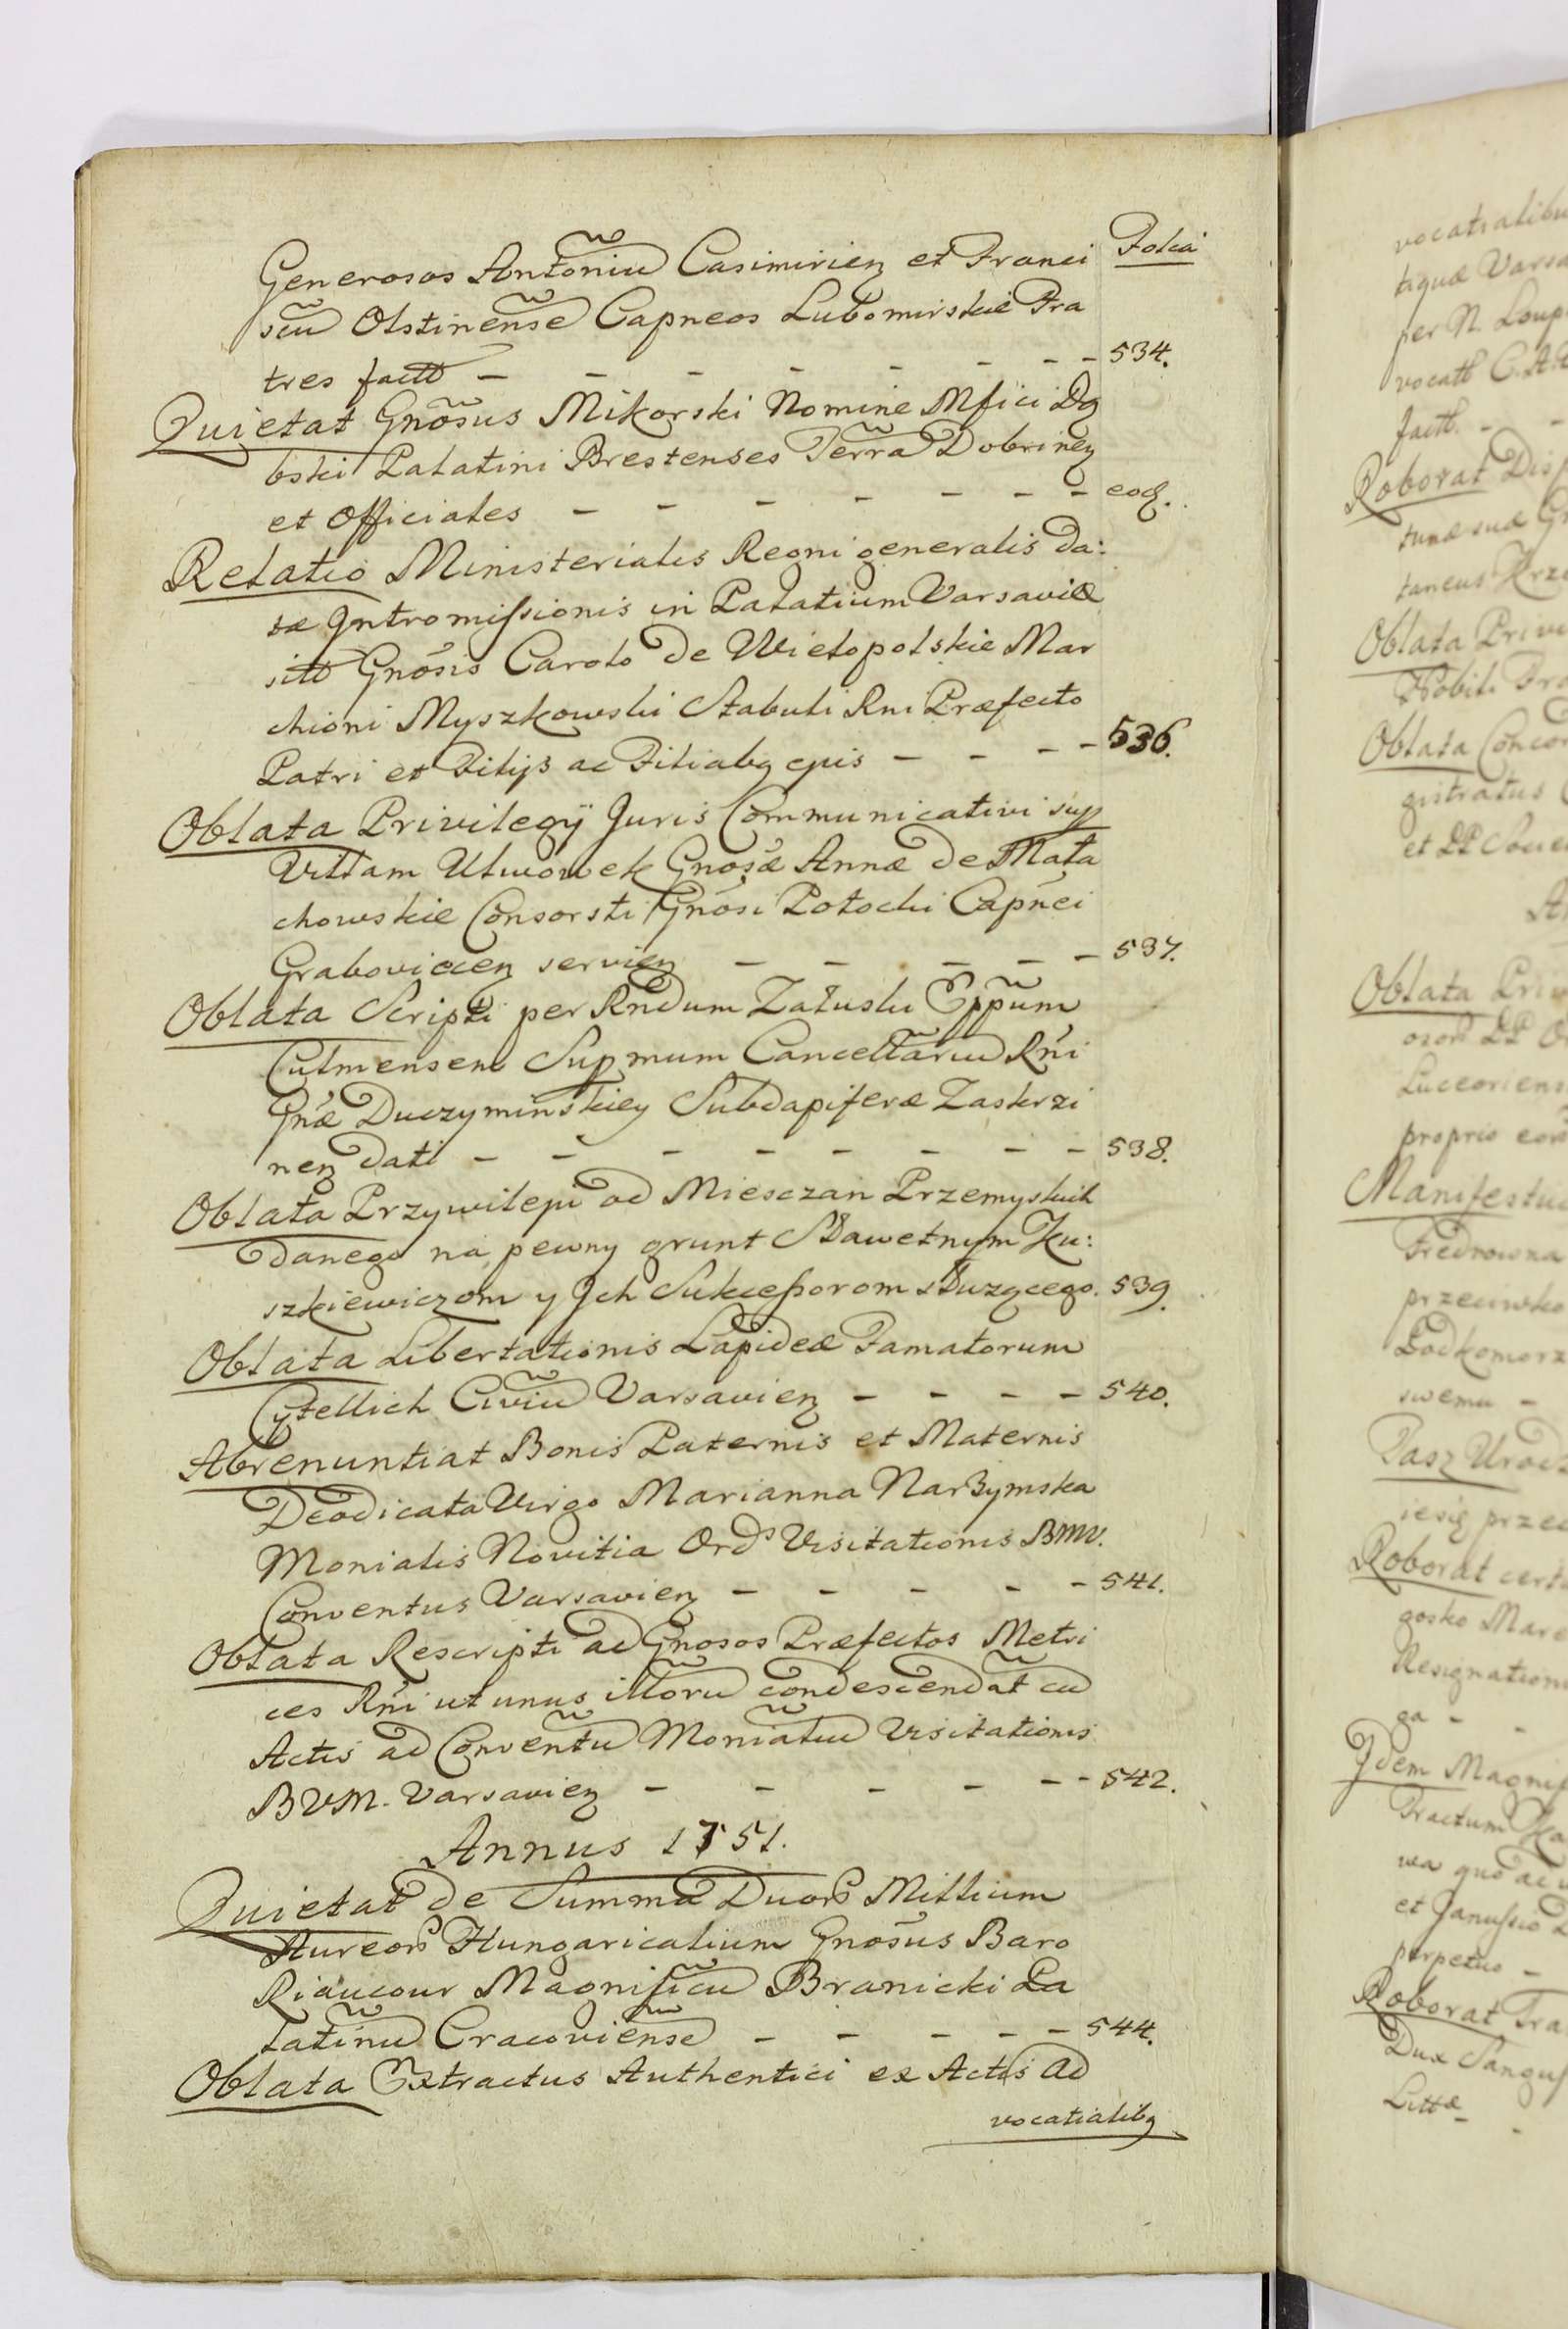 Folia
Generosos Antõniu Casimirien et Franci
scũ Olstinense Capneos Lubomirskie Fra
tres factã - - - - - - - 534.
Quietat Gnõsus Mikorski Nomine Mfici Dą
bski Palatini Brestenses Terrã Dobrinen
et Officiales - - - - - - eoq.
Relatio Ministerialis Regni generalis da:
tæ Intromissionis in Palatium Varsaviæ
sitã Gnõsis Carolo de Wielopolskie Mar
chioni Myszkowski Stabuli Rni Præfecto
Patri et Filijs ac Filiabq ejus - - - - 536.
Oblata Privilegÿ Juris Communicativi sup
Villam Ulwowek Gnosæ Annæ de Mała
chowskie Consorsti Gnósi Potocki Capnéi
Graboviecen servien - - - - - 537.
Oblata Scripti per Rndum Załuski Eppũm
Culmensem Supmum Cancellãriu Rńi
Gnæ Duczyminskiey Subdapiferæ Zaskrzi
nen dati - - - - - - - - 538.
Oblata Przywileju od Miesczan Przemyskich
danego na pewny grunt Sławetnym Ku:
szkiewiczom y Jch Sukcessorom służącego. 539.
Oblata Libertationis Lapideæ Famatorum
Cytellich Civiũ Varsavien - - - - 540.
Abrenuntiat Bonis Paternis et Maternis
Deodicata Virgo Marianna Narzymska
Monialis Novitia Ords Visitationis BMV.
Conventus Varsavien - - - - - 541.
Oblata Rescripti ad Gnosos Præfectos Metri
ces Rńi ut unus illorũ condescendat cũ
Actis ad Conventũ Monialiũ Visitationis
BVM. Varsavien - - - - - - 542.
Annus 1751.
Quietat de Summa Duorõ Millium
Aureorõ Hungaricalium Gnosũs Baro
Riaucour Magnificũ Branicki Pa
latinũ Cracoviense - - - - - 544.
Oblata Extractus Authentici ex Actis Ad
vocatialibq
vocatialibu
tiquæ Varsa
per N. Loup
factõ. -
Roborat Disp
tunæ suæ G
taneus Krze
Oblata Privi
Nobili Fra
Oblata Concor
gistratus
Oblata Priv
Luceoriens
proprio
Manifestu
Fredrowna
przeciwko
Podkomorz
swemu -
Pasz Urodz
iesię przec
Roborat cert
gosko Mare
Resignation
ga - -
Jdem Magnif
Tractum Ka
et Janussio
perpetuo -
Roborat Tra
Dux Sangus
Littæ - -